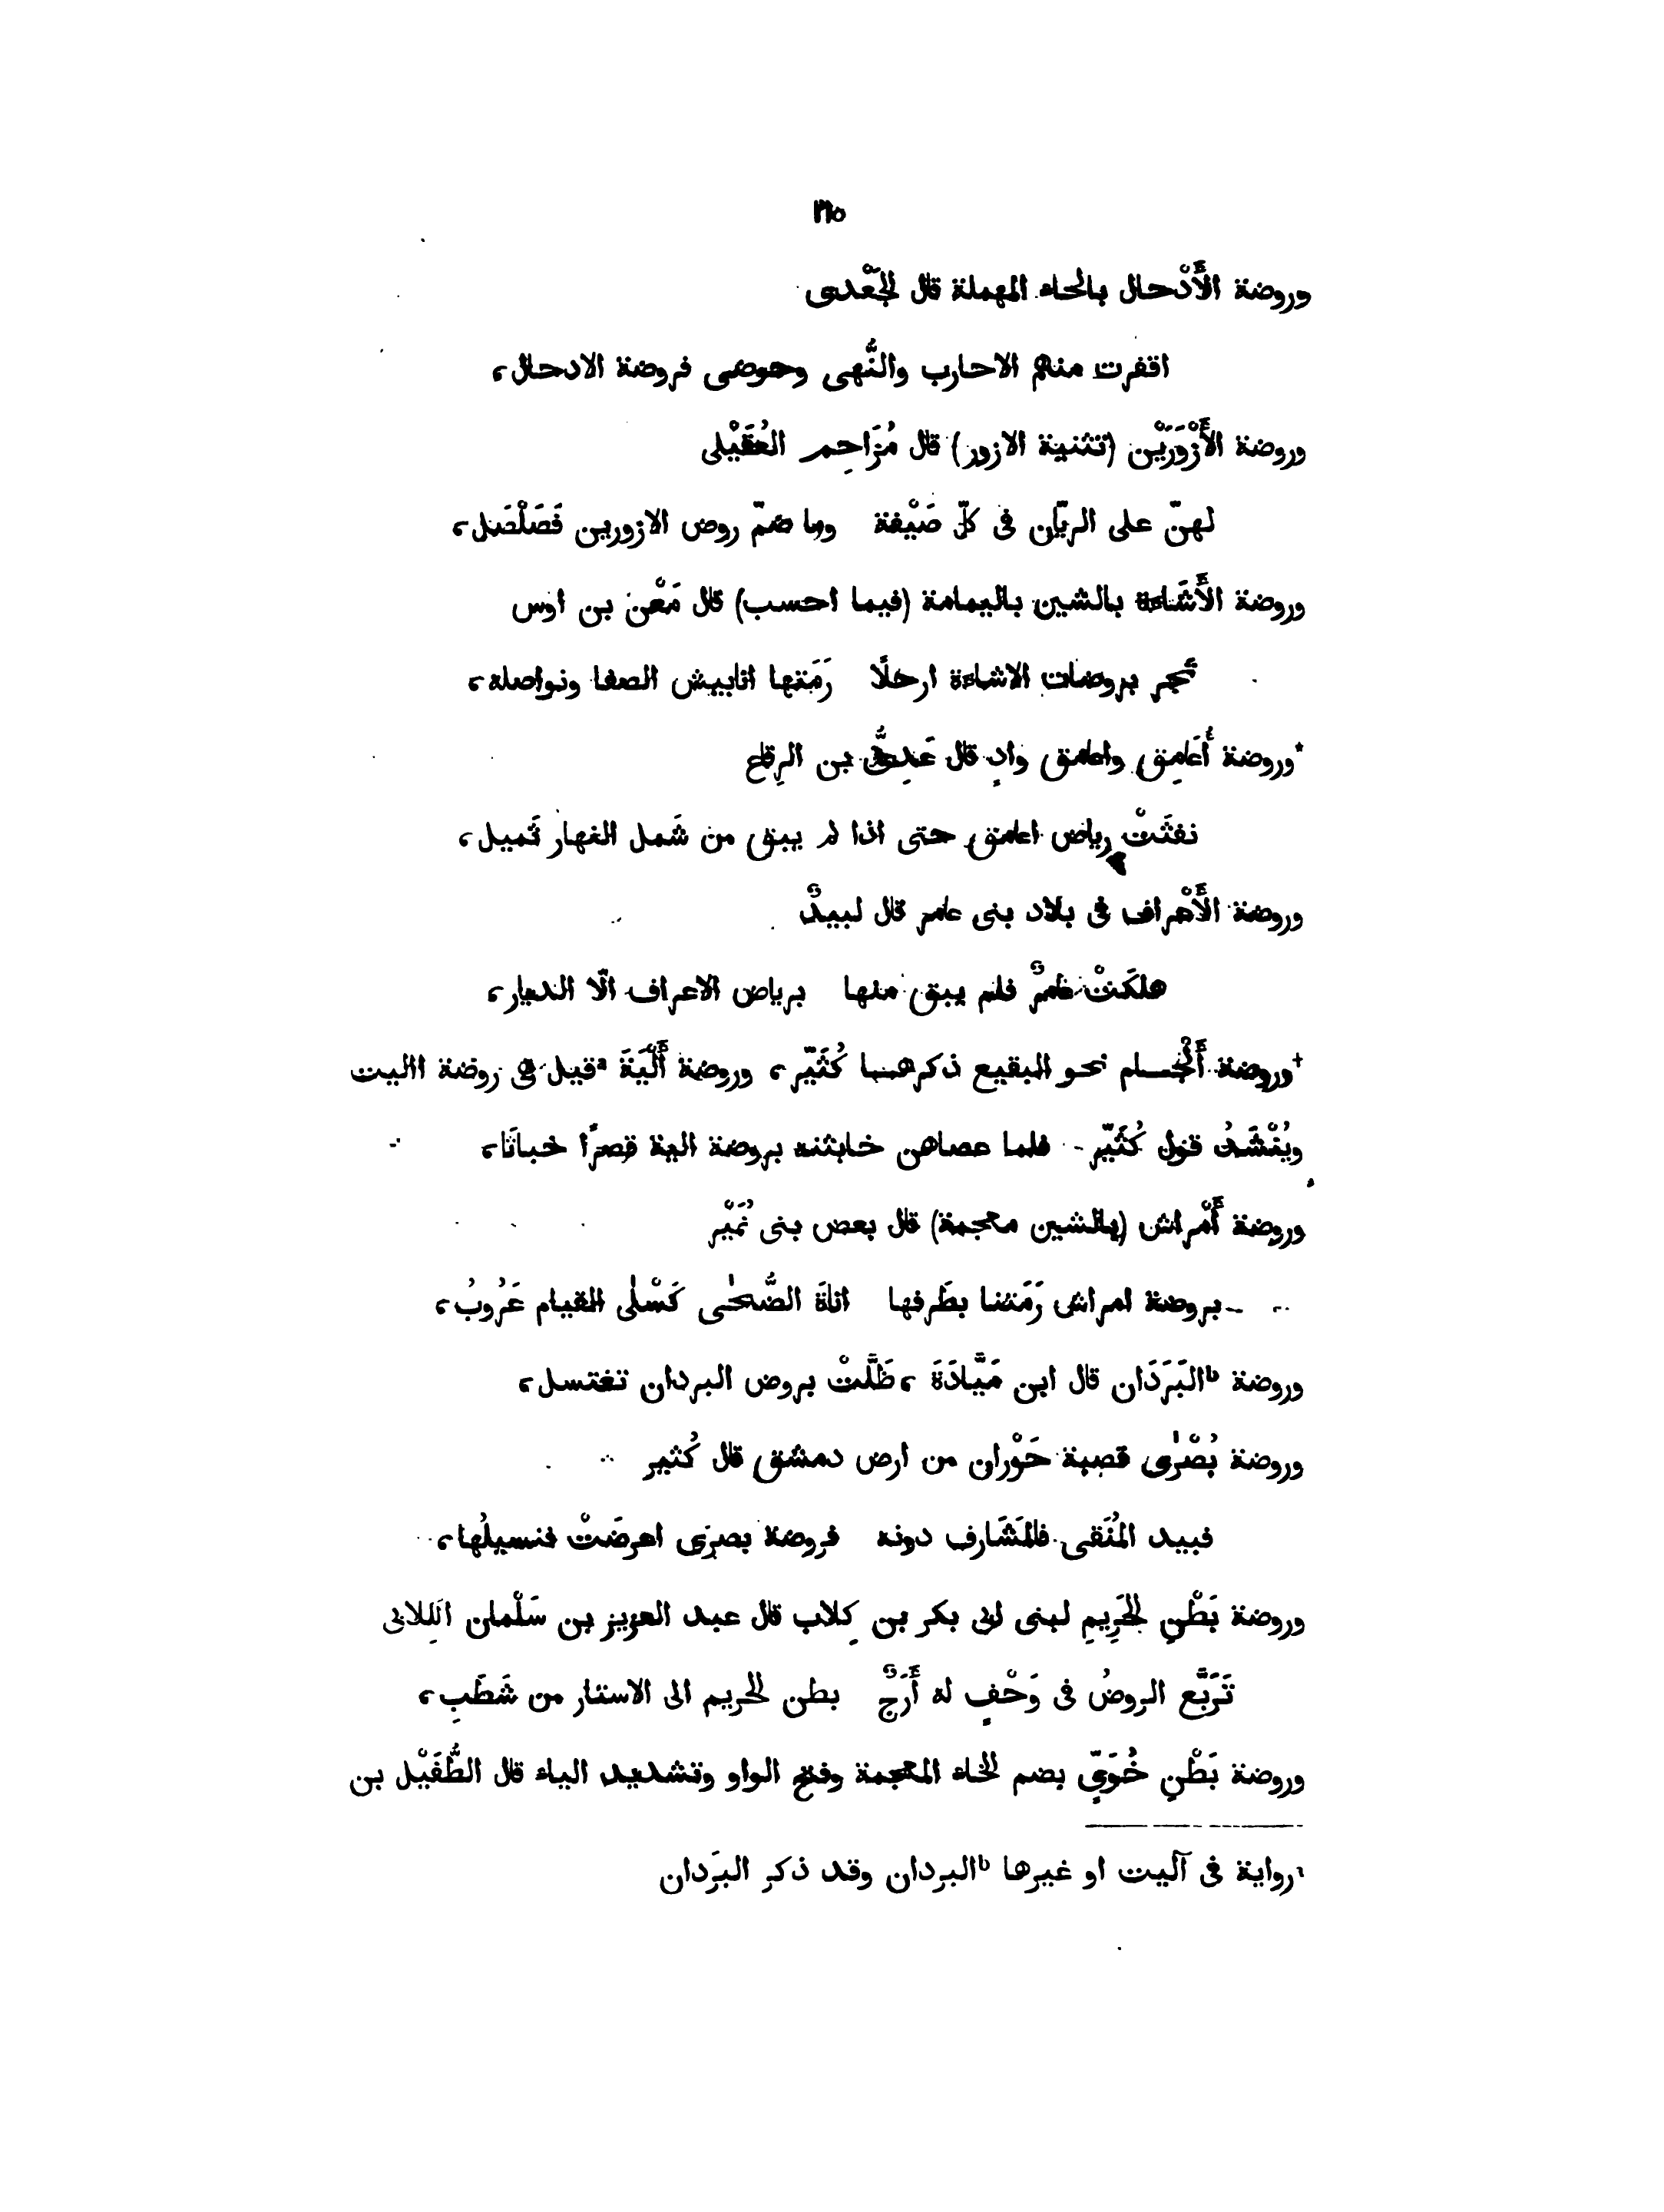 ٢١٥
وروضة الأَدْحال بالحاء المهملة قال الجَعْدى
اقفرت منهم الاحارب والنُّهى وحوضى فروضة الادحال،
وروضة الأَزْوَرَيْن (تثنية الازور) قال مُزَاحِم العُقَيْلى
لهنّ على الريّان فى كلّ صَيْفة وما ضمّ روض الازورين فَصَلْصَل،
وروضة الأَشَاءة بالشين باليمامة (فيما احسب) قال مَعْن بن اوس
تَجر بروضات الاشاءة ارحلًا رَمَتها انابيش الصفا ونواصله،
*وروضة أُعَامِق واعامق وادٍ قال عَدِىُّ بن الرِقاع
نفشَتْ رياض اعامق حتى اذا لم يبق من شَمل النهار ثَميل،
وروضة الأَعْراف فى بلاد بنى عامر قال لبيدٌ
هلكَتْ عامرٌ فلم يبق منها برياض الاعراف الّا الديار،
†وروضة أَلْجـام نحو البقيع ذكرهـا كُثَيّر، وروضة أَلْيَةَ ªقيل فى روضة االيت
ويُنْشَدُ قول كُثَيّر فلما عصاهن خابثنه بروضة الية قصرًا خباثَا،
وروضة أَمْراش (بالشين معجمة) قال بعض بنى نُمَيْر
بروضة امراش رَمَتنا بطَرفها اناةَ الضُّحٰى كَسْلٰى القيام عَرُوبُ،
وروضة ᵇالبَرَدَان قال ابن مَيَّادَةَ، ظَلَّتْ بروض البردان تغتسل،
وروضة بُصْرٰى قصبة حَوْران من ارض دمشق قال كُثير
فبيد المُنَقى فالمَشَارف دونه فروضة بصرَى اعرضَتْ فنسيلُها،
وروضة بَطْنِ الحَرِيمِ لبنى ابى بكر بن كِلاب قال عبد العزيز بن سَلْمان الكِلابى
تَرَبَّع الروضُ فى وَحْفٍ له أَرَجٌ بطن الحريم الى الاستار من شَطَبِ،
وروضة بَطْنِ خُوَيّ بضم الخاء المعجمة وفتح الواو وتشديد الياء قال الطُّفَيْل بن
ªرواية فى آليت او غيرها ᵇالبردان وقد ذكر البرَدان